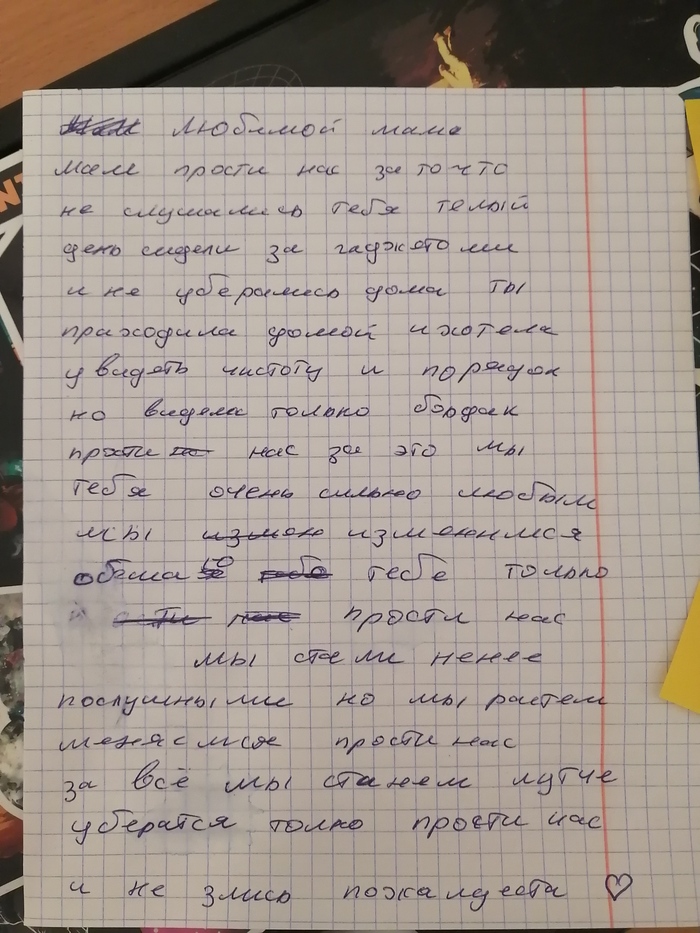 Любимой маме
Мам прости нас за то что
не слушались тебя телый
день сидели за гаджетоми
и не уберались дома ты
праходила домой и хотела
увидеть чистоту и порядок
но видела только бордак
прости нас за это мы
тебя очень сильно любым
мы измено изменимся
обеща ю тебе только
прости нас
мы стали менее
послушными но мы растем
меняемся прости нас
за всё мы станем лутче
убератся толко прости нас
и не злись пожалуеста ♡